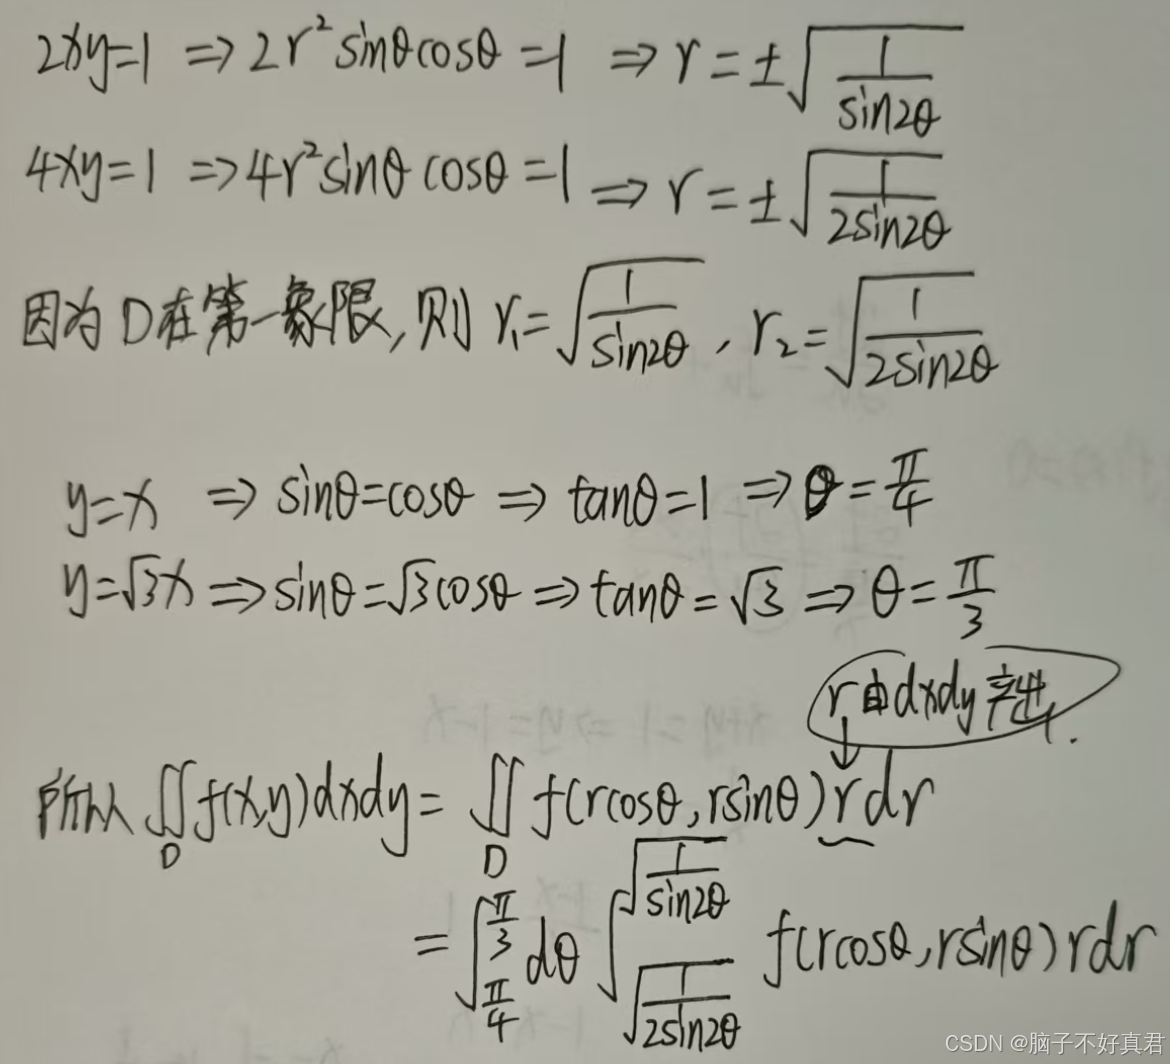 2xy=1 ⇒ 2r²sinθcosθ=1 ⇒ r=±√(1/sin2θ)
4xy=1 ⇒ 4r²sinθcosθ=1 ⇒ r=±√(1/2sin2θ)
因为D在第一象限,则 r₁=√(1/sin2θ) , r₂=√(1/2sin2θ)
y=x ⇒ sinθ=cosθ ⇒ tanθ=1 ⇒ θ=π/4
y=√3x ⇒ sinθ=√3cosθ ⇒ tanθ=√3 ⇒ θ=π/3
r由dxdy产生.
所以 ∬_D f(x,y)dxdy = ∬_D f(rcosθ,rsinθ)rdr
= ∫_{π/4}^{π/3} dθ ∫_{√(1/2sin2θ)}^{√(1/sin2θ)} f(rcosθ,rsinθ)rdr
CSDN @脑子不好真君